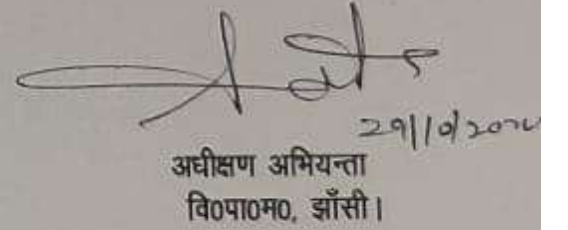 29/10/202
अधीक्षण अभियन्ता
वि0पा0म0, झाँसी।